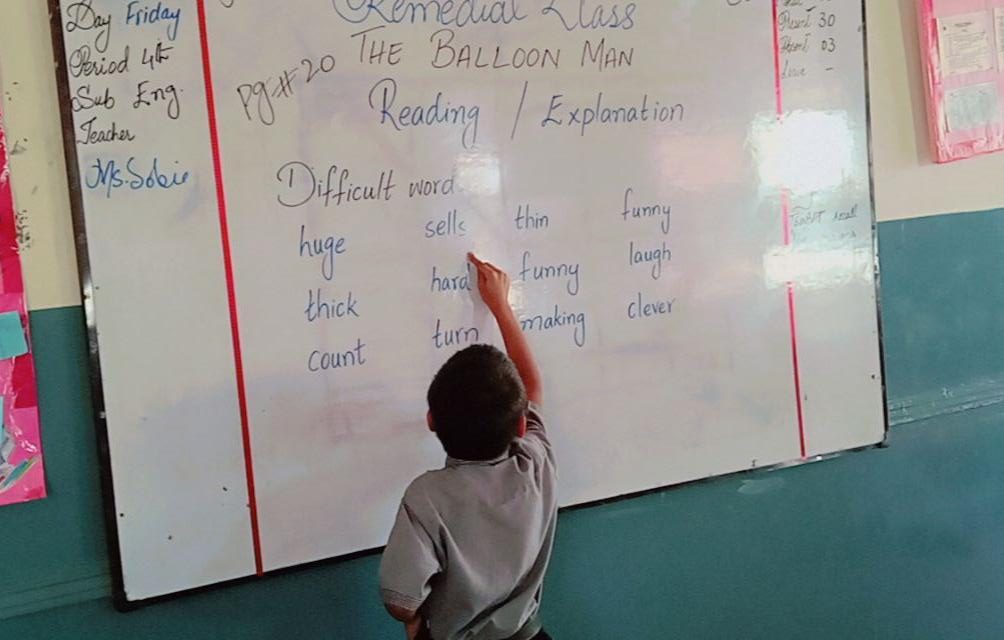 Day Friday
Period 4th
Sub Eng.
Teacher
Ms. Sobia
Remedial Class
THE BALLOON MAN
Pg # 20
Reading / Explanation
Difficult word
huge sells thin funny
thick hard funny laugh
count turn making clever
Present 30
Absent 03
Leave -